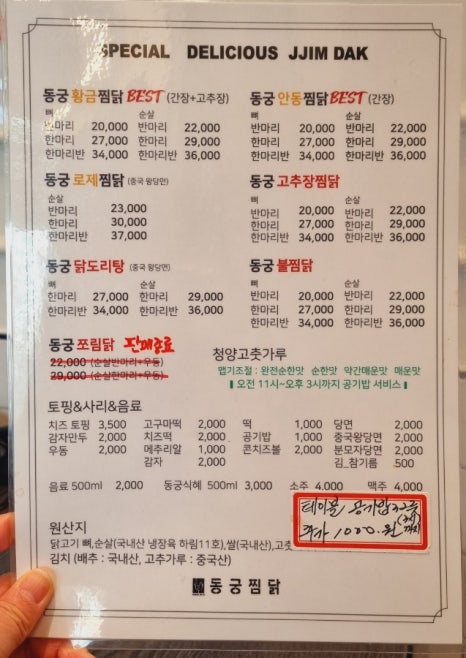 SPECIAL DELICIOUS JJIM DAK
동궁 황금찜닭 BEST (간장+고추장)
뼈 순살
반마리 20,000 반마리 22,000
한마리 27,000 한마리 29,000
한마리반 34,000 한마리반 36,000
동궁 안동찜닭 BEST (간장)
뼈 순살
반마리 20,000 반마리 22,000
한마리 27,000 한마리 29,000
한마리반 34,000 한마리반 36,000
동궁 로제찜닭 (중국 왕당면)
순살
반마리 23,000
한마리 30,000
한마리반 37,000
동궁 고추장찜닭
뼈 순살
반마리 20,000 반마리 22,000
한마리 27,000 한마리 29,000
한마리반 34,000 한마리반 36,000
동궁 닭도리탕 (중국 왕당면)
뼈 순살
한마리 27,000 한마리 29,000
한마리반 34,000 한마리반 36,000
동궁 불찜닭
뼈 순살
한마리 27,000 한마리 29,000
한마리반 34,000 한마리반 36,000
동궁 쪼림닭 판매종료
22,000 (순살반마리+우동)
29,000 (순살한마리+우동)
청양고춧가루
맵기조절 : 완전순한맛 순한맛 약간매운맛 매운맛
오전 11시~오후 3시까지 공기밥 서비스
토핑&사리&음료
치즈 토핑 3,500 고구마떡 2,000 떡 1,000 당면 2,000
감자만두 2,000 치즈떡 2,000 공기밥 1,000 중국왕당면 2,000
우동 2,000 메추리알 1,000 콘치즈볼 2,000 분모자당면 2,000
감자 2,000 김_참기름 500
음료 500ml 2,000 동궁식혜 500ml 3,000 소주 4,000 맥주 4,000
테이블 공기밥
추가 1000.원
원산지
닭고기 뼈,순살(국내산 냉장육 하림11호),쌀(국내산),고춧
김치 (배추 : 국내산, 고추가루 : 중국산)
동궁찜닭